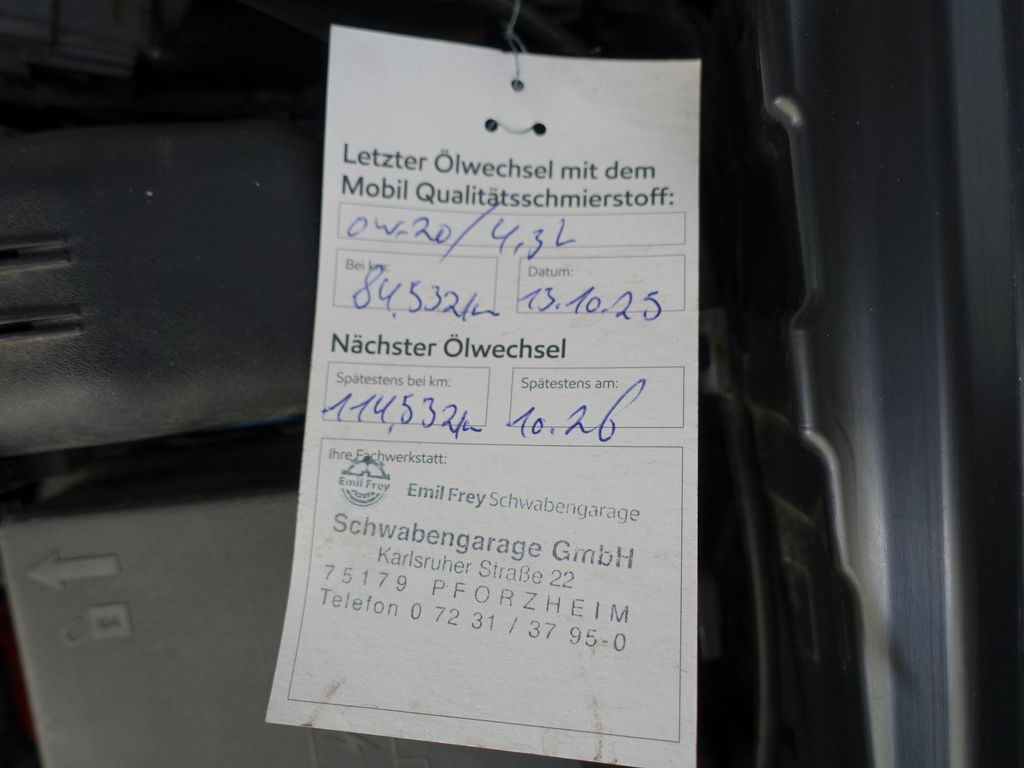 Letzter Ölwechsel mit dem
Mobil Qualitätsschmierstoff:
0W-20/4,3L
Bei km:
84,532km
Datum:
13.10.25
Nächster Ölwechsel
Spätestens bei km:
114,532km
Spätestens am:
10.26
Ihre Fachwerkstatt:
Emil Frey
Emil Frey Schwabengarage
Schwabengarage GmbH
Karlsruher Straße 22
75179 PFORZHEIM
Telefon 0 72 31 / 37 95-0